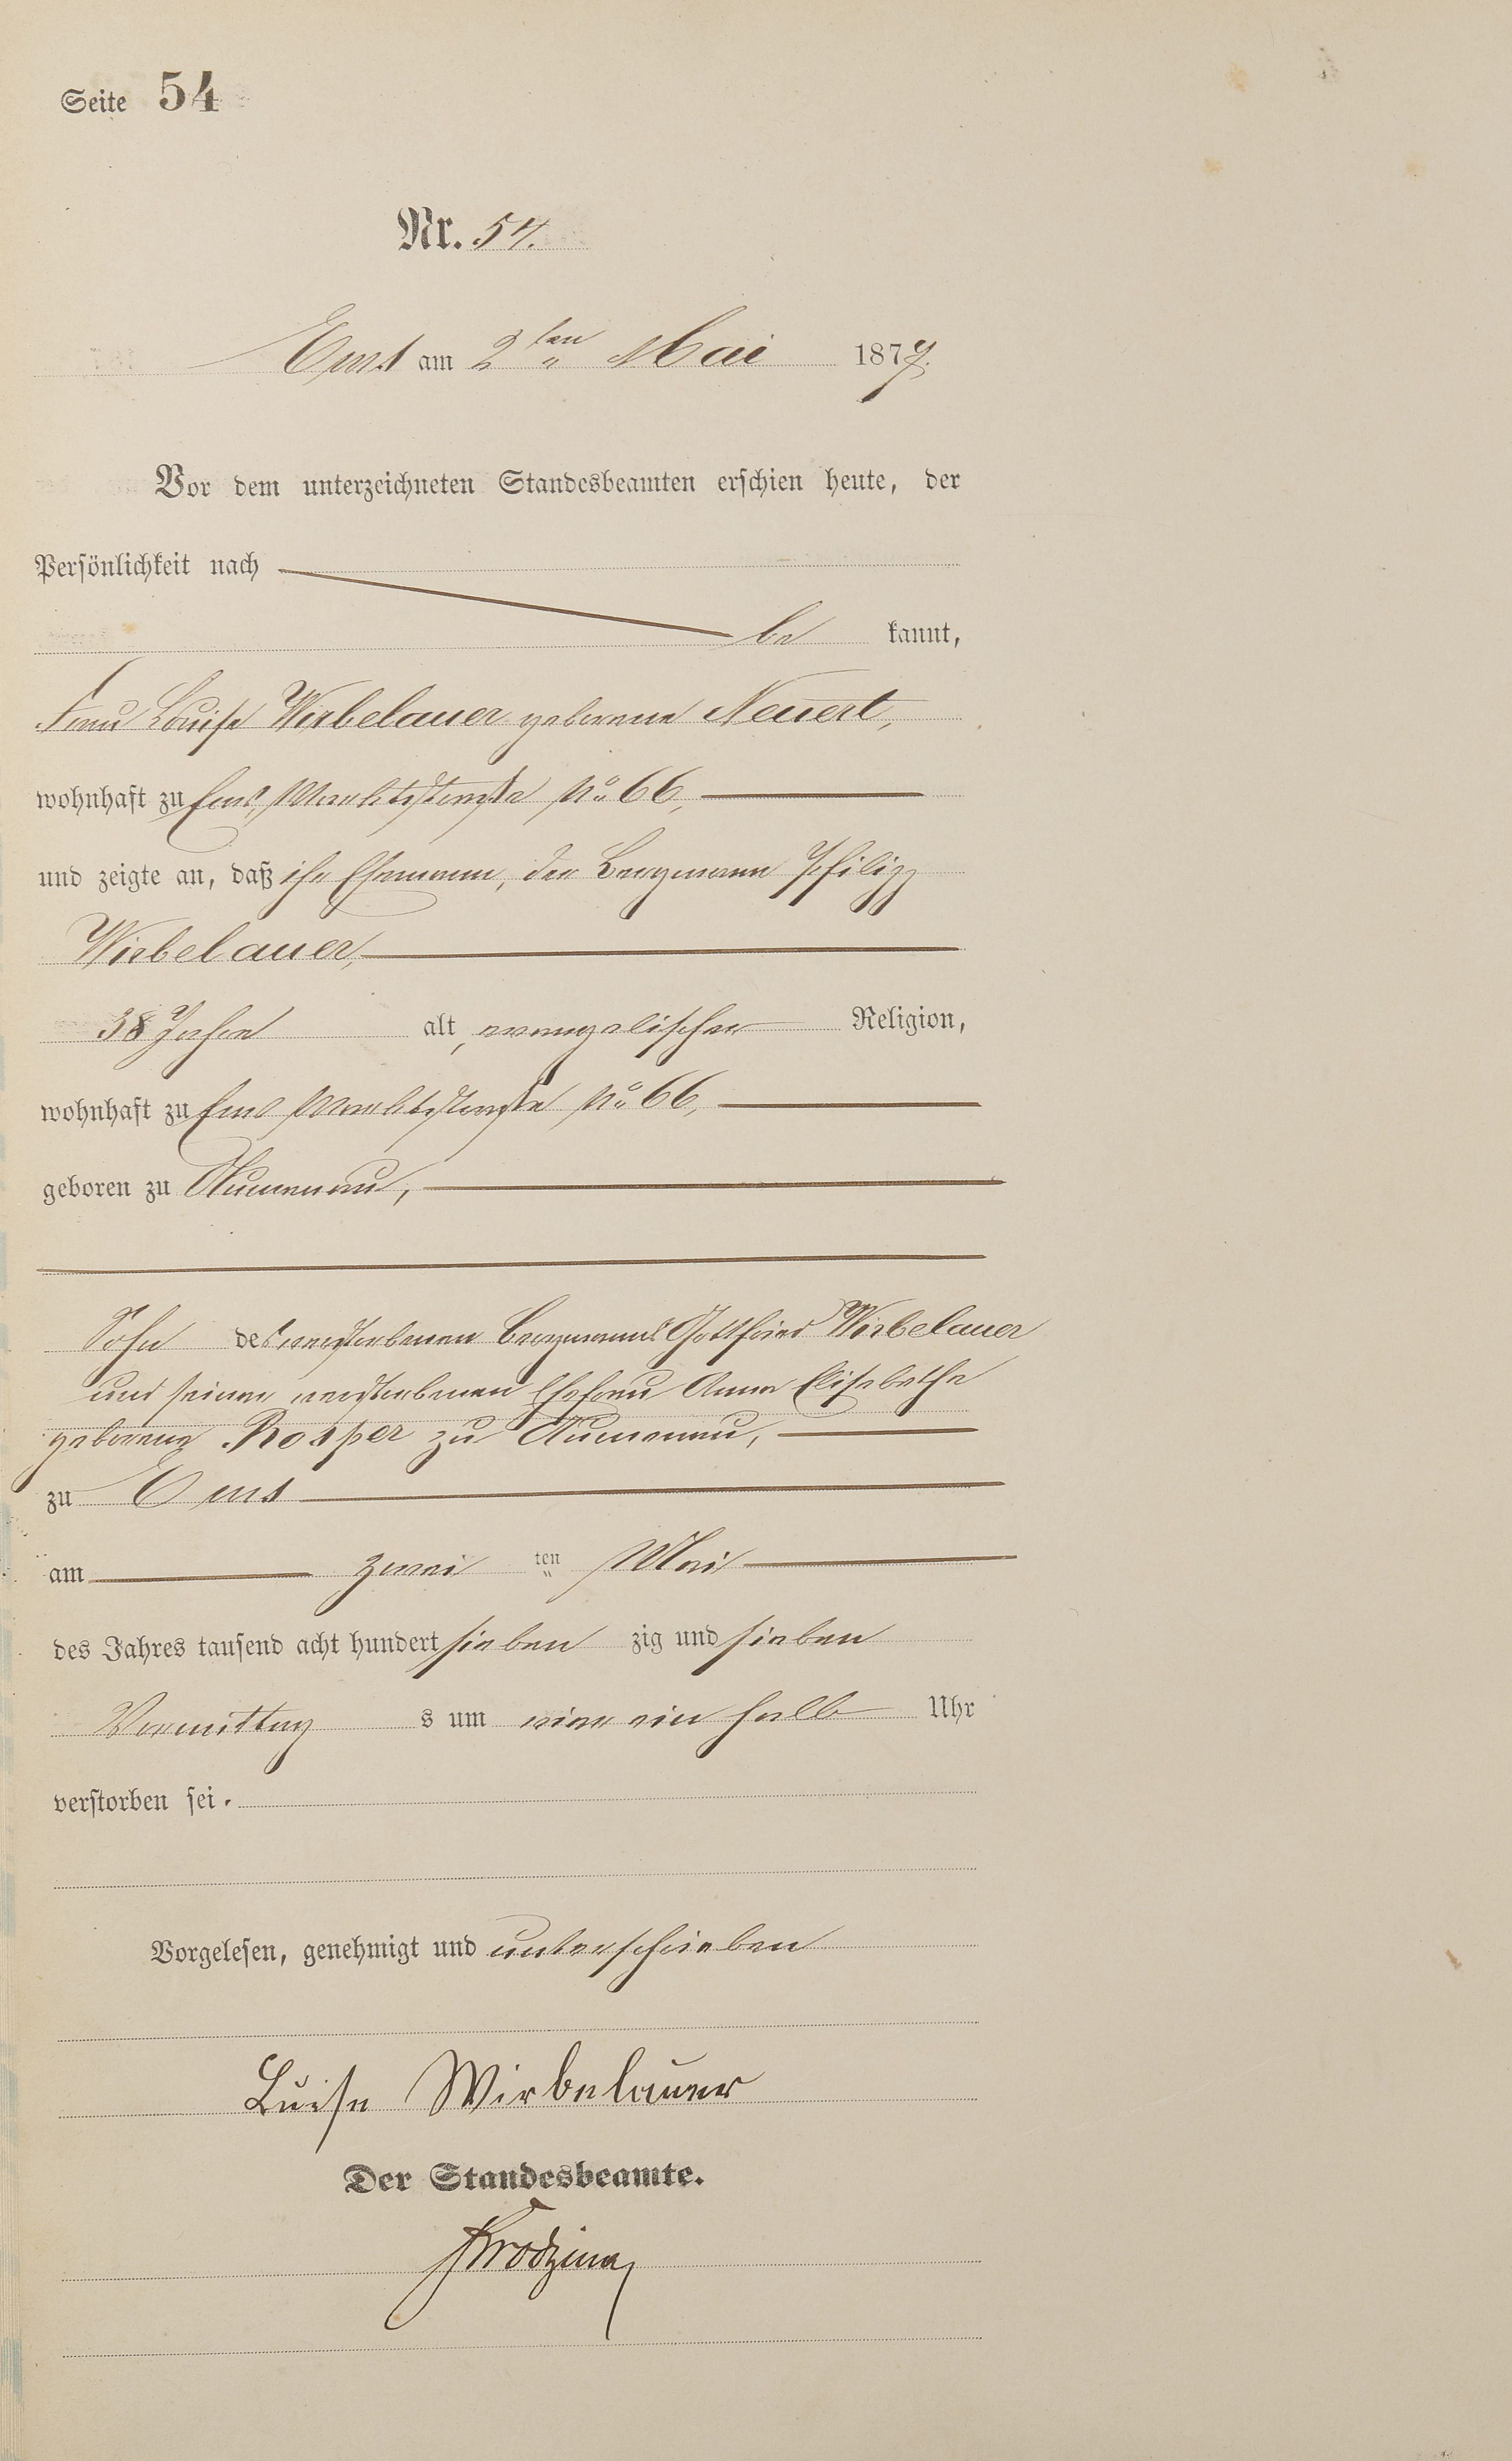 Seite 54
Nr. 54.
Ems am 2ten Mai 1877.
Vor dem unterzeichneten Standesbeamten erschien heute, der
Persönlichkeit nach
be kannt,
Frau Louise Wirbelauer geborene Neuert,
wohnhaft zu Ems, Marktstraße No 66,
und zeigte an, daß ihr Ehemann, der Bergmann Philipp
Wirbelauer,
38 Jahre alt, evangelischer Religion,
wohnhaft zu Ems Marktstraße No 66,
geboren zu Aumenau,
Sohn des verstorbenen Bergmanns Gottfried Wirbelauer
und seiner verstorbenen Ehefrau Anna Elisabethe
geborene Rosper zu Aumenau,
zu Ems
am zwei ten Mai
des Jahres tausend acht hundert sieben zig und sieben
Vormittag s um ein halb Uhr
verstorben sei.
Vorgelesen, genehmigt und unterschrieben
Luise Wirbelauer
Der Standesbeamte.